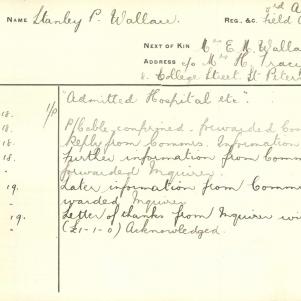 NAME Stanley P. Wallace. REG. &c. 3rd A
Field
NEXT OF KIN Mrs E. M. Walla
ADDRESS c/o Mrs H. Trace
8. College Street St Peter
18. 1/P "Admitted Hospital etc".
18. P/Cable confirmed - forwarded Co
18. Reply from Commrs. Information
18. Further information from Comm
- forwarded Inquirer.
19. Later information from Comm
- warded Inquirer
19. Letter of thanks from Inquirer wi
- (£1-1-0) Acknowledged.